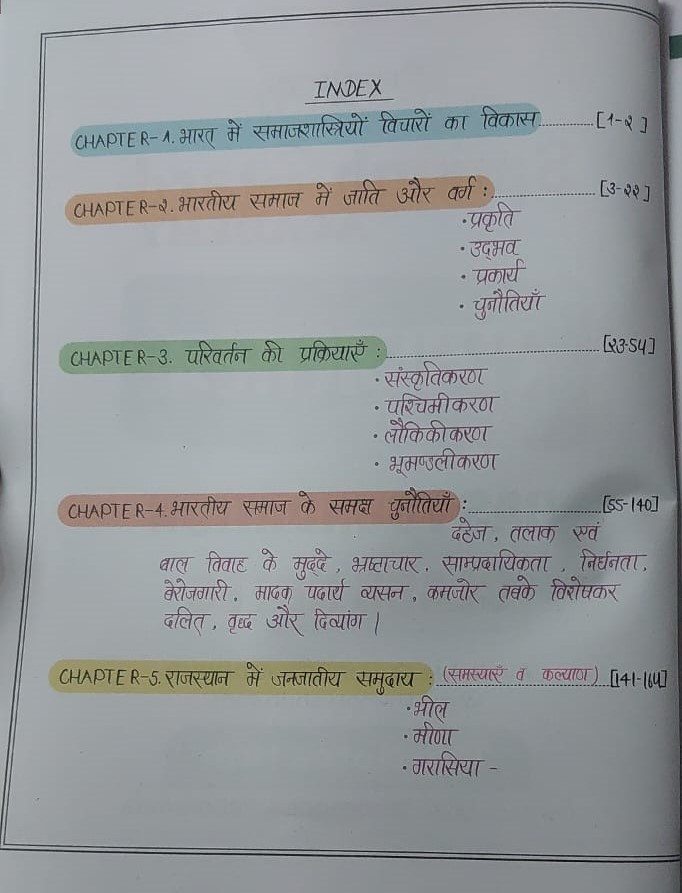 INDEX
CHAPTER-1. भारत में समाजशास्त्रियों विचारों का विकास ............ [1-२]
CHAPTER-२. भारतीय समाज में जाति और वर्ग : ............ [3-२२]
• प्रकृति
• उद्भव
• प्रकार्य
• चुनौतियाँ
CHAPTER-3. परिवर्तन की प्रक्रियाएँ : ............ [२3-54]
• संस्कृतिकरण
• पश्चिमीकरण
• लौकिकीकरण
• भूमण्डलीकरण
CHAPTER-4. भारतीय समाज के समक्ष चुनौतियाँ : ............ [55-140]
दहेज, तलाक एवं
बाल विवाह के मुद्दे, भ्रष्टाचार, साम्प्रदायिकता, निर्धनता,
बेरोजगारी, मादक पदार्थ व्यसन, कमजोर तबके विशेषकर
दलित, वृद्ध और दिव्यांग।
CHAPTER-5. राजस्थान में जनजातीय समुदाय : (समस्याएँ व कल्याण) [141-164]
• भील
• मीणा
• गरासिया -